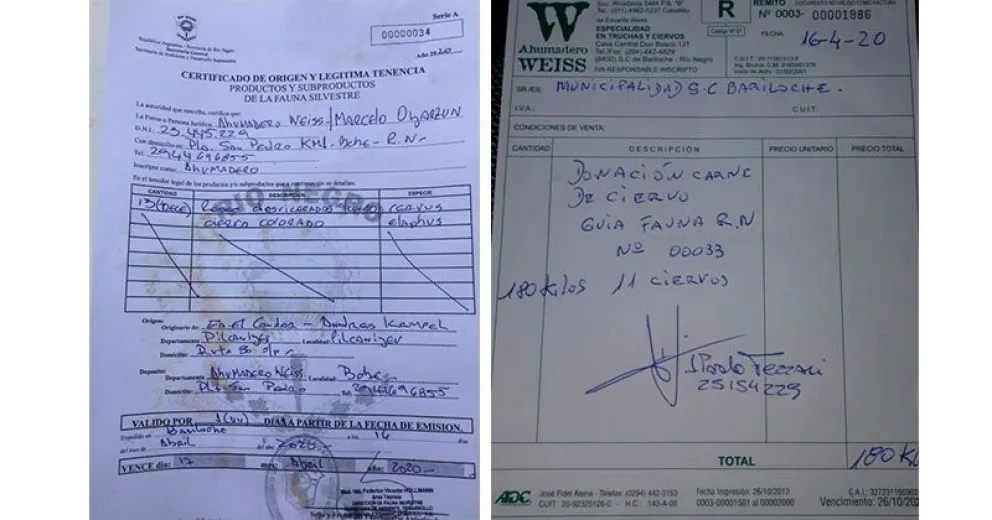 Serie A
00000034
República Argentina - Provincia de Río Negro
Secretaría General
Secretaría de Ambiente y Desarrollo Sustentable
Año 2020
CERTIFICADO DE ORIGEN Y LEGITIMA TENENCIA
PRODUCTOS Y SUBPRODUCTOS
DE LA FAUNA SILVESTRE
La autoridad que suscribe, certifica que:
La Firma o Persona Jurídica: Ahumadero Weiss/Marcelo Oyarzun
D.N.I.: 25.445.229
Con domicilio en: Pla. San Pedro KM1-Bche-R.N-
Tel: 2944696855
Inscripto como: Ahumadero
Es el tenedor legal de los productos y/o subproductos que a continuación se detallan:
CANTIDAD DESCRIPCION ESPECIE
13 (trece) desvicerados cervus
ciervo colorado elaphus
RIO NEGRO
Origen:
Originario de: Ea. el Condor -
Departamento Pilcaniyeu Localidad: Pilcaniyeu
Domicilio: Ruta 80 s/n
Deposito: Ahumadero Weiss Localidad: Bche
Departamento
Domicilio: Pla. San Pedro Tel. 2944696855
VALIDO POR 1 (un) DIAS A PARTIR DE LA FECHA DE EMISION.
Expedido en Bariloche a los 16 días
del mes de Abril del año 2020-
VENCE día: 17 mes: Abril año: 2020-
Área Técnica
DIRECCION DE FAUNA SILVESTRE
W
Ahumadero
WEISS
de Eduardo Weiss
ESPECIALIDAD
EN TRUCHAS Y CIERVOS
Casa Central Don Bosco 131
Tel/Fax: (294) 442-4829
(8400) S.C de Bariloche - Río Negro
IVA RESPONSABLE INSCRIPTO
R
REMITO DOCUMENTO NO VALIDO COMO FACTURA
Nº 0003- 00001986
FECHA 16-4-20
SR./ES: MUNICIPALIDAD S.C BARILOCHE.
IVA: CUIT:
CONDICIONES DE VENTA:
CANTIDAD DESCRIPCIÓN PRECIO UNITARIO PRECIO TOTAL
DONACIÓN CARNE
DE CIERVO
GUIA FAUNA R.N
Nº 00033
180 Kilos 11 CIERVOS
25154229
TOTAL 180 K
ADC José Fidel Alsina - Telefax: (0294) 442-3153
CUIT: 20-92325126-0 - H.C.: 143-A-00
Fecha Impresión: 26/10/2012
0003-00001501 al 00002000
Vencimiento: 26/10/